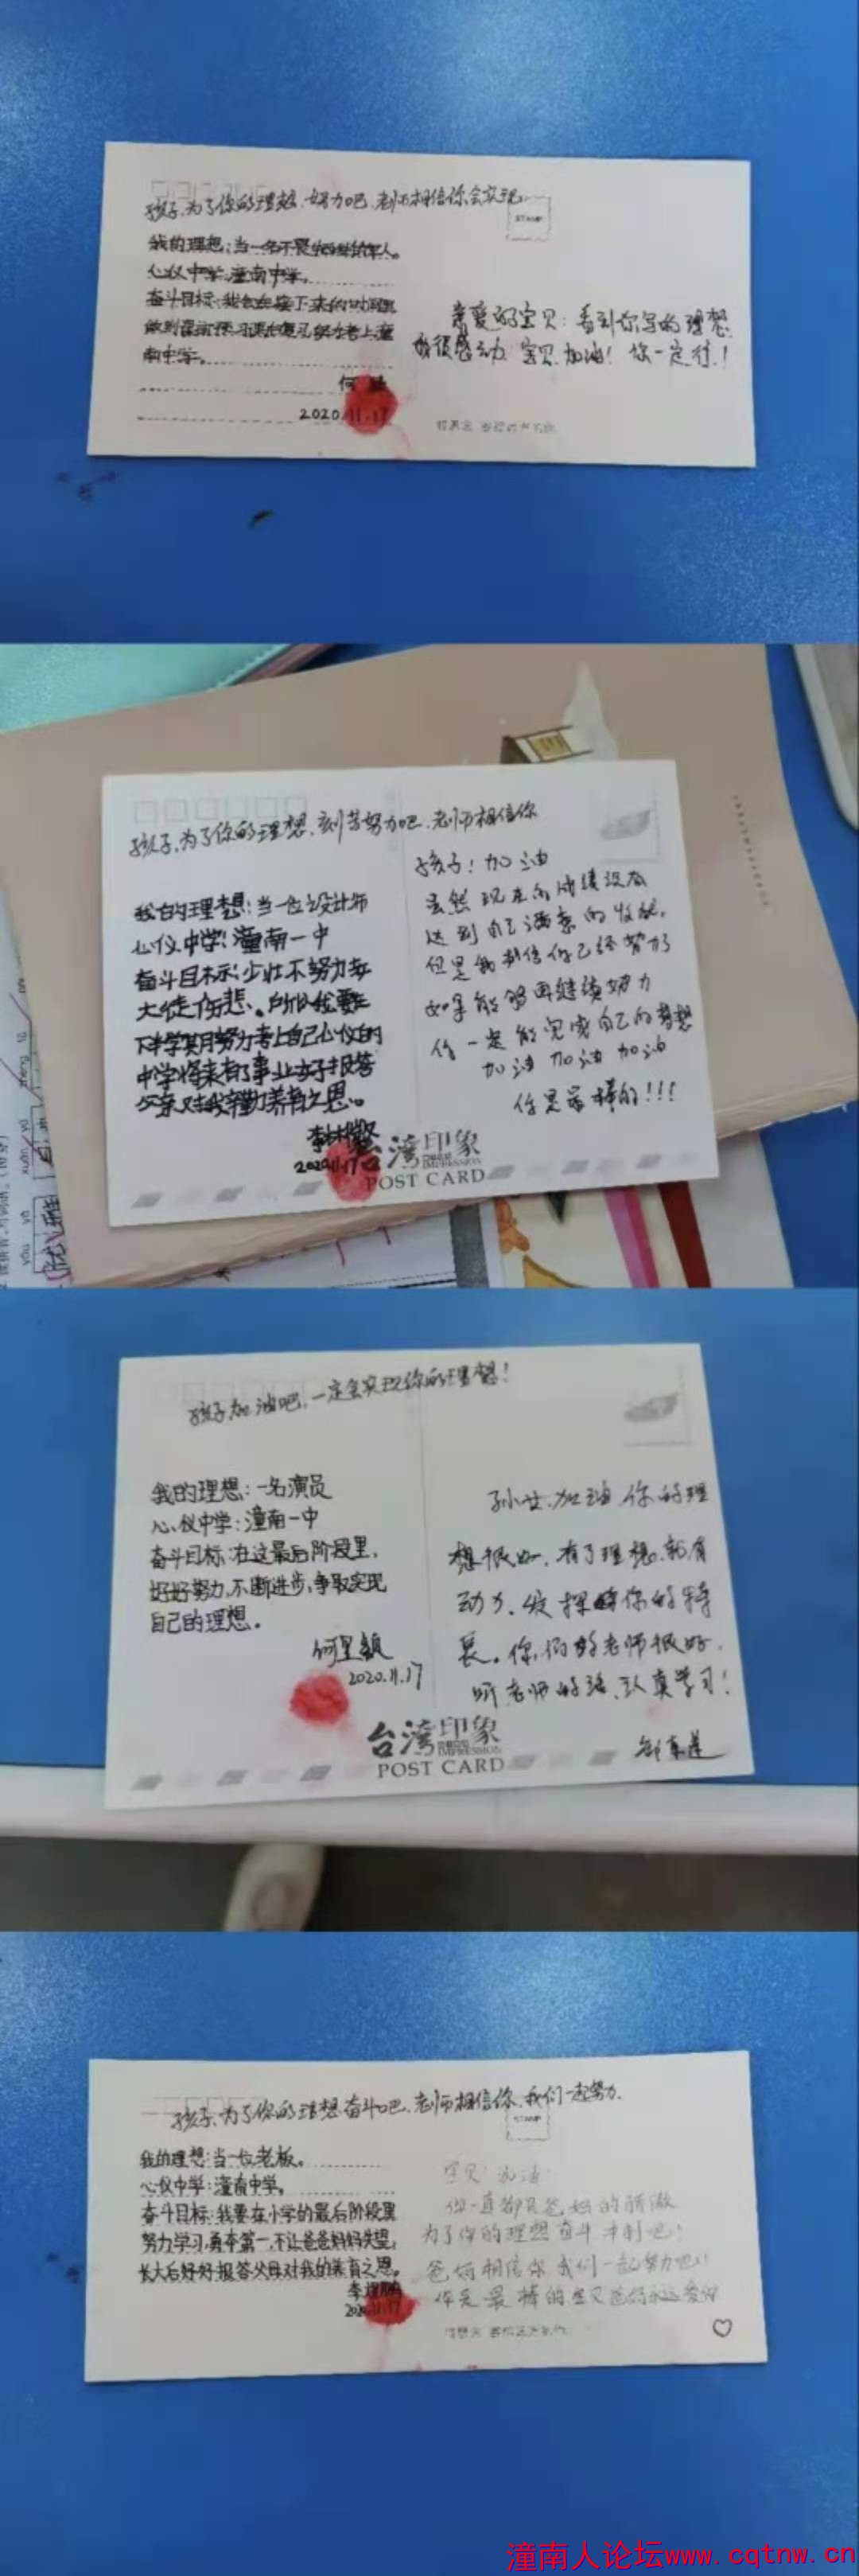 孩子,为了你的理想,努力吧,老师相信你会实现
STAMP
我的理想:当一名不畏牺牲的军人。
心仪中学:潼南中学。
奋斗目标:我会在接下来的时间里
做到课前预习课后复习努力考上潼
南中学。
何
2020.11.17
亲爱的宝贝:看到你写的理想,
我很感动,宝贝加油!你一定行!
孩子,为了你的理想,刻苦努力吧,老师相信你
我的理想:当一位设计师
心仪中学:潼南一中
奋斗目标:少壮不努力老
大徒伤悲。所以我要在
下半学期努力考上自己心仪的
中学将来有了事业好好报答
父亲对我辛勤养育之恩。
2020.11.17
孩子!加油
虽然现在的成绩没有
达到自己满意的收获,
但是我相信你已经努力了
如果能够再继续努力
你一定能完成自己的梦想
加油 加油 加油
你是最棒的!!!
台湾印象
IMPRESSION
POST CARD
孩子加油吧,一定会实现你的理想!
我的理想:一名演员
心仪中学:潼南一中
奋斗目标:在这最后阶段里,
好好努力,不断进步,争取实现
自己的理想。
何星颖
2020.11.17
孙女,加油,你的理
想很好,有了理想,就有
动力,发挥你的特
长。你们的老师很好,
听老师的话,认真学习!
台湾印象
IMPRESSION
POST CARD
孩子,为了你的理想奋斗吧,老师相信你,我们一起努力.
STAMP
我的理想:当一位老板。
心仪中学:潼南中学。
奋斗目标:我要在小学的最后阶段里
努力学习,勇夺第一,不让爸爸妈妈失望,
长大后好好报答父母对我的养育之恩。
2020.11.17
宝贝!加油!
你一直都是爸妈的骄傲
为了你的理想奋斗冲刺吧!
爸妈相信你我们一起努力吧!
你是最棒的,宝贝爸妈永远爱你
潼南人论坛www.cqtnw.cn